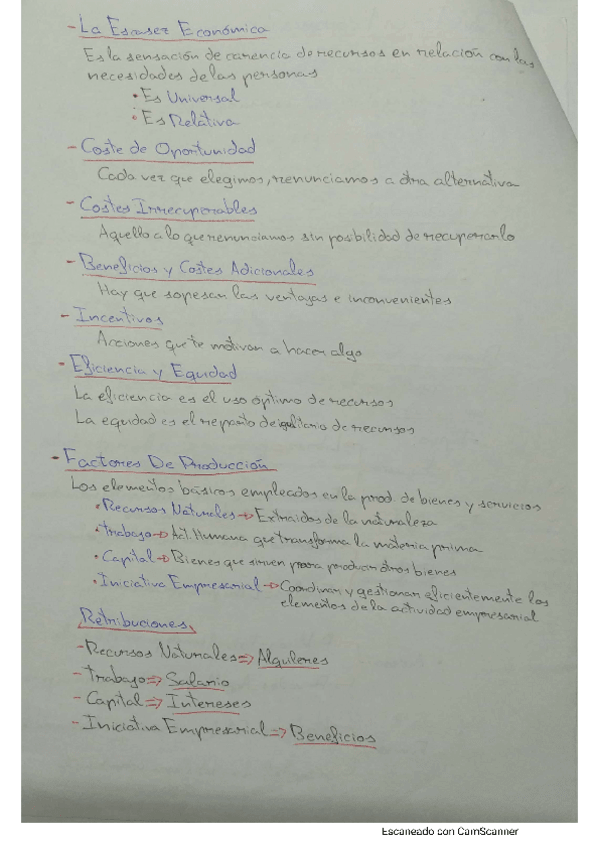 - La Escasez Económica
Es la sensación de carencia de recursos en relación con las
necesidades de las personas
• Es Universal
• Es Relativa
- Coste de Oportunidad
Cada vez que elegimos, renunciamos a otra alternativa
- Costes Irrecuperables
Aquello a lo que renunciamos sin posibilidad de recuperarlo
- Beneficios y Costes Adicionales
Hay que sopesar las ventajas e inconvenientes
- Incentivos
Acciones que te motivan a hacer algo
- Eficiencia y Equidad
La eficiencia es el uso óptimo de recursos
La equidad es el reparto de recursos
- Factores De Producción
Los elementos básicos empleados en la prod. de bienes y servicios
• Recursos Naturales → Extraidos de la naturaleza
• Trabajo → Act. Humana que transforma la materia prima
• Capital → Bienes que sirven para producir otros bienes
• Iniciativa Empresarial → Coordinar y gestionar eficientemente los
elementos de la actividad empresarial
Retribuciones
- Recursos Naturales ⇒ Alquileres
- Trabajo ⇒ Salario
- Capital ⇒ Intereses
- Iniciativa Empresarial ⇒ Beneficios
Escaneado con CamScanner